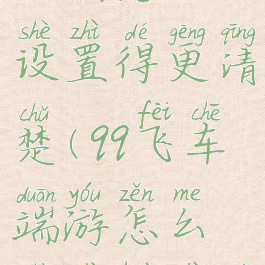 shè zhì dé gēng qīng
设置得更清
chǔ fēi chē
楚(99飞车
duān yóu zěn me
端游怎么